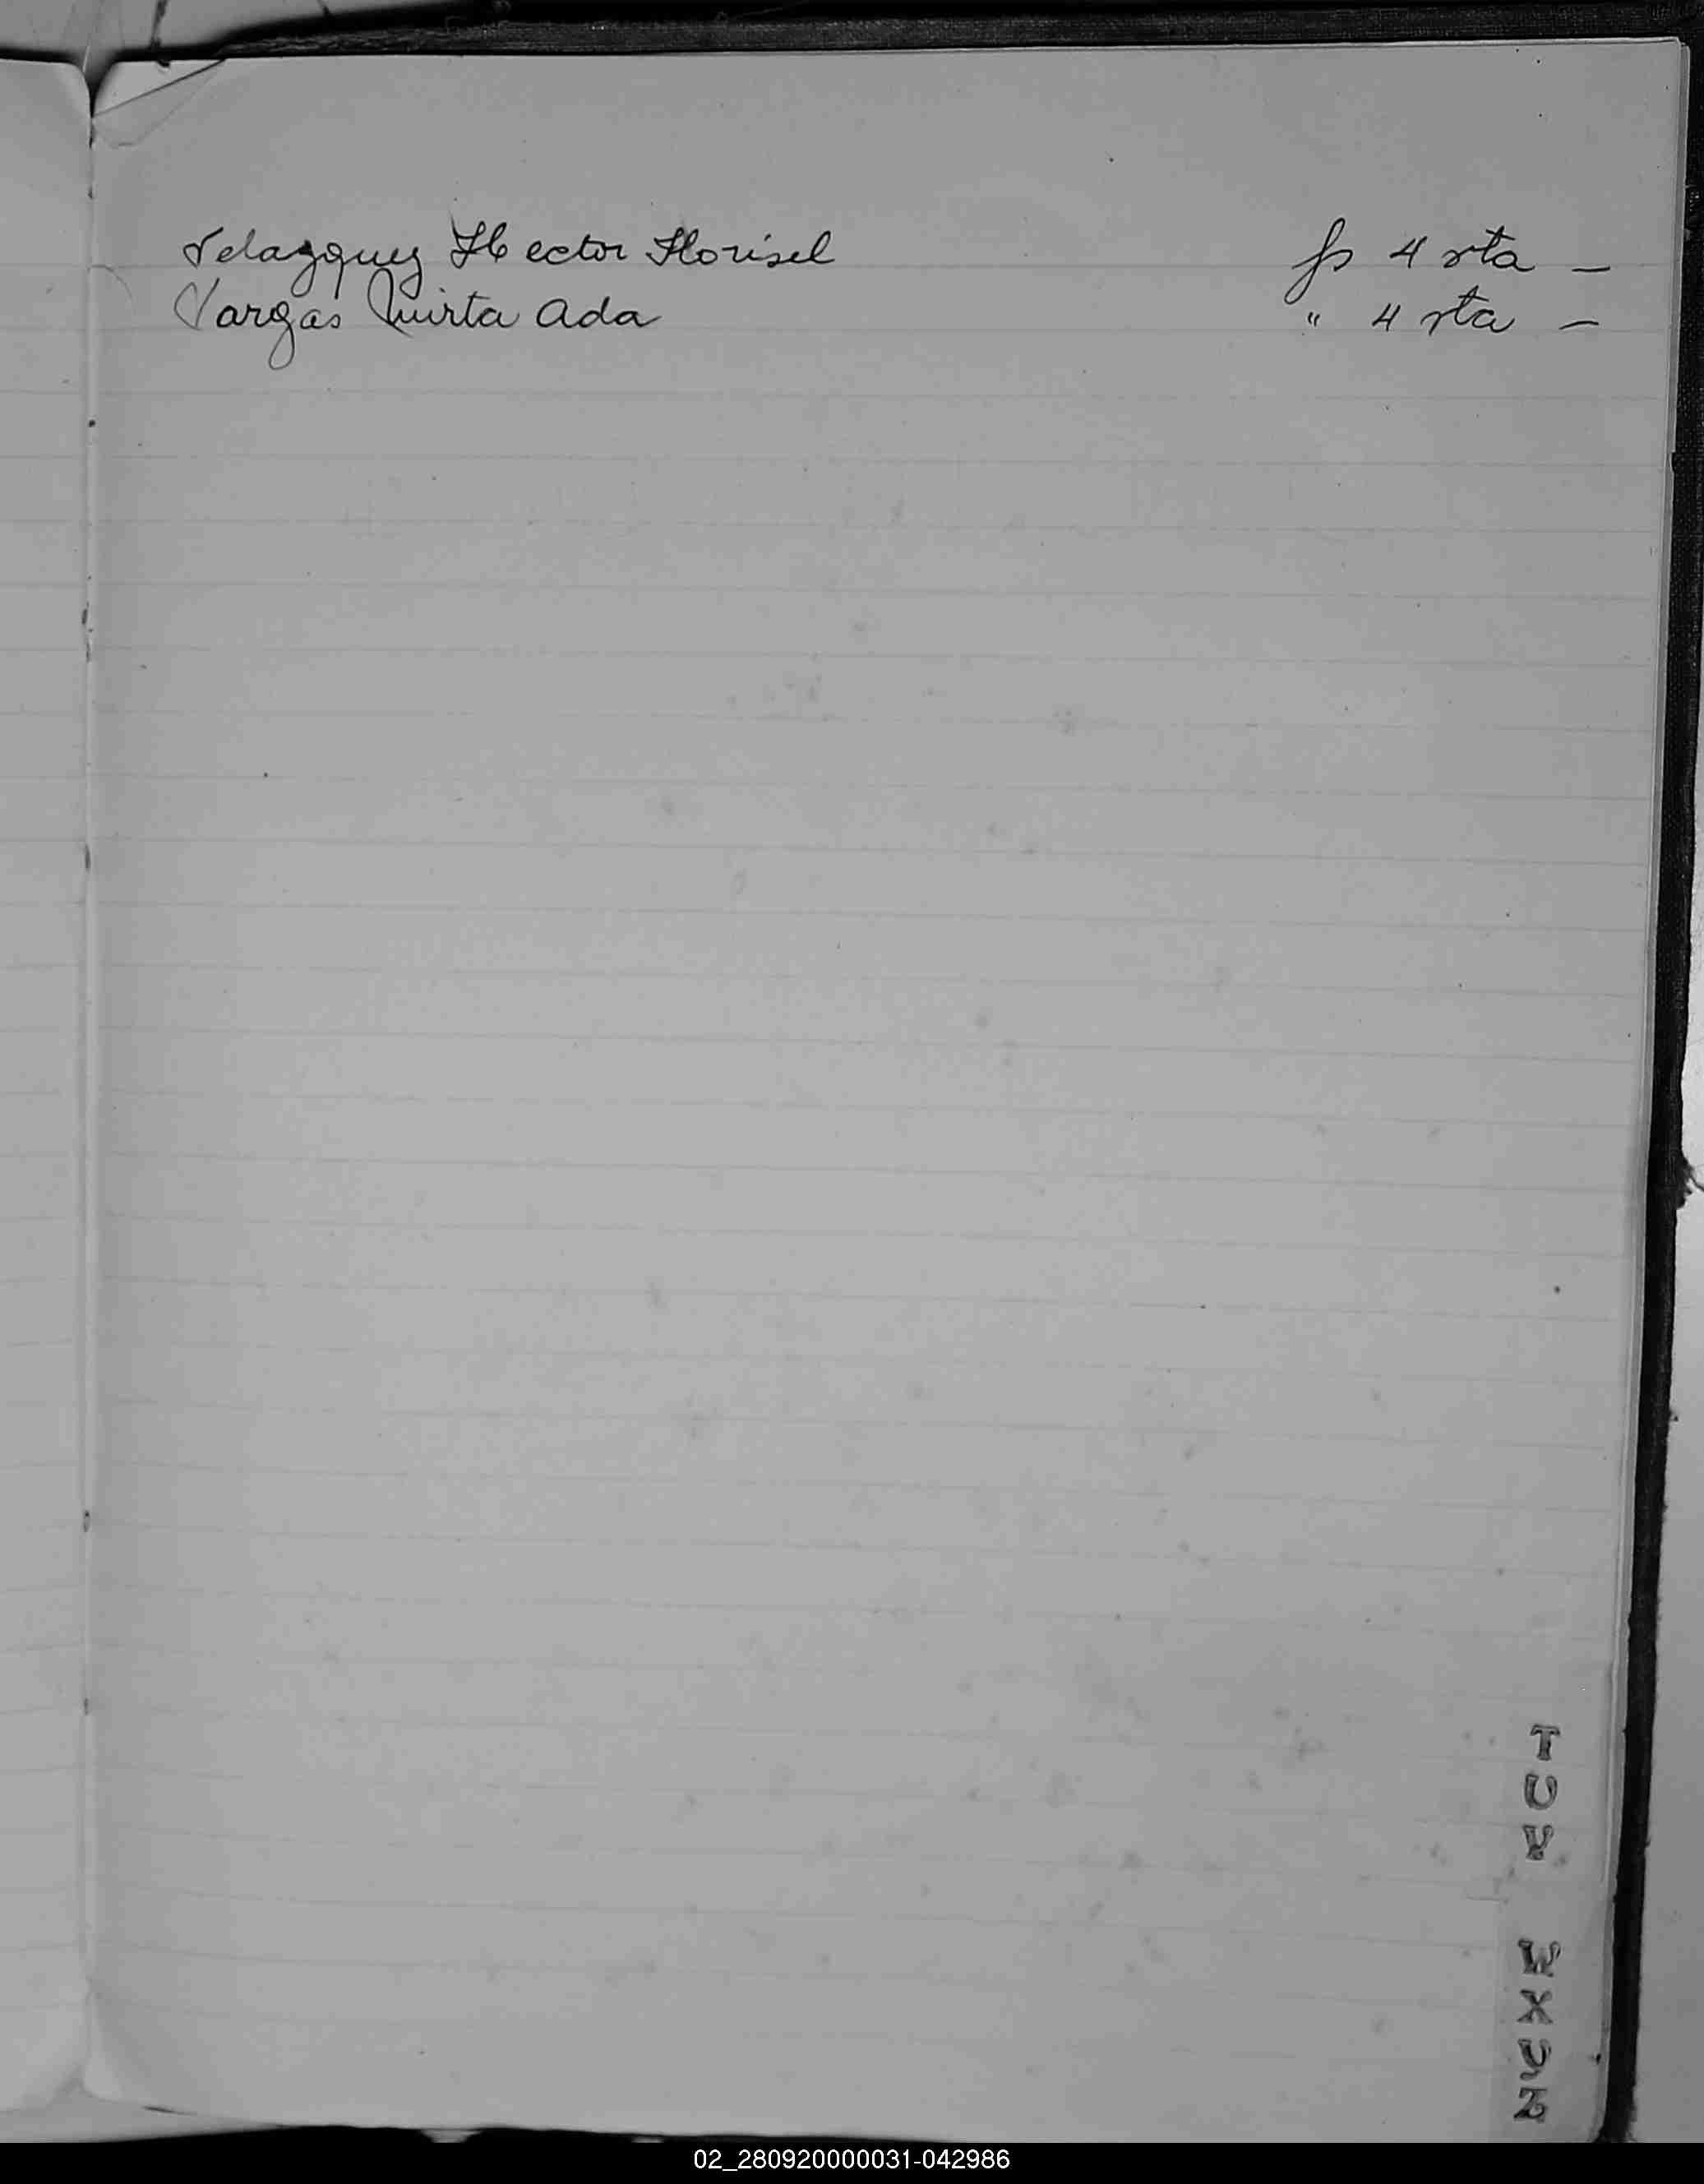 Velazquez Hector Florisel fs 4 vta -
Vargas Mirta Ada " 4 vta -
T
U
V
W
X
Y
Z
02_280920000031-042986